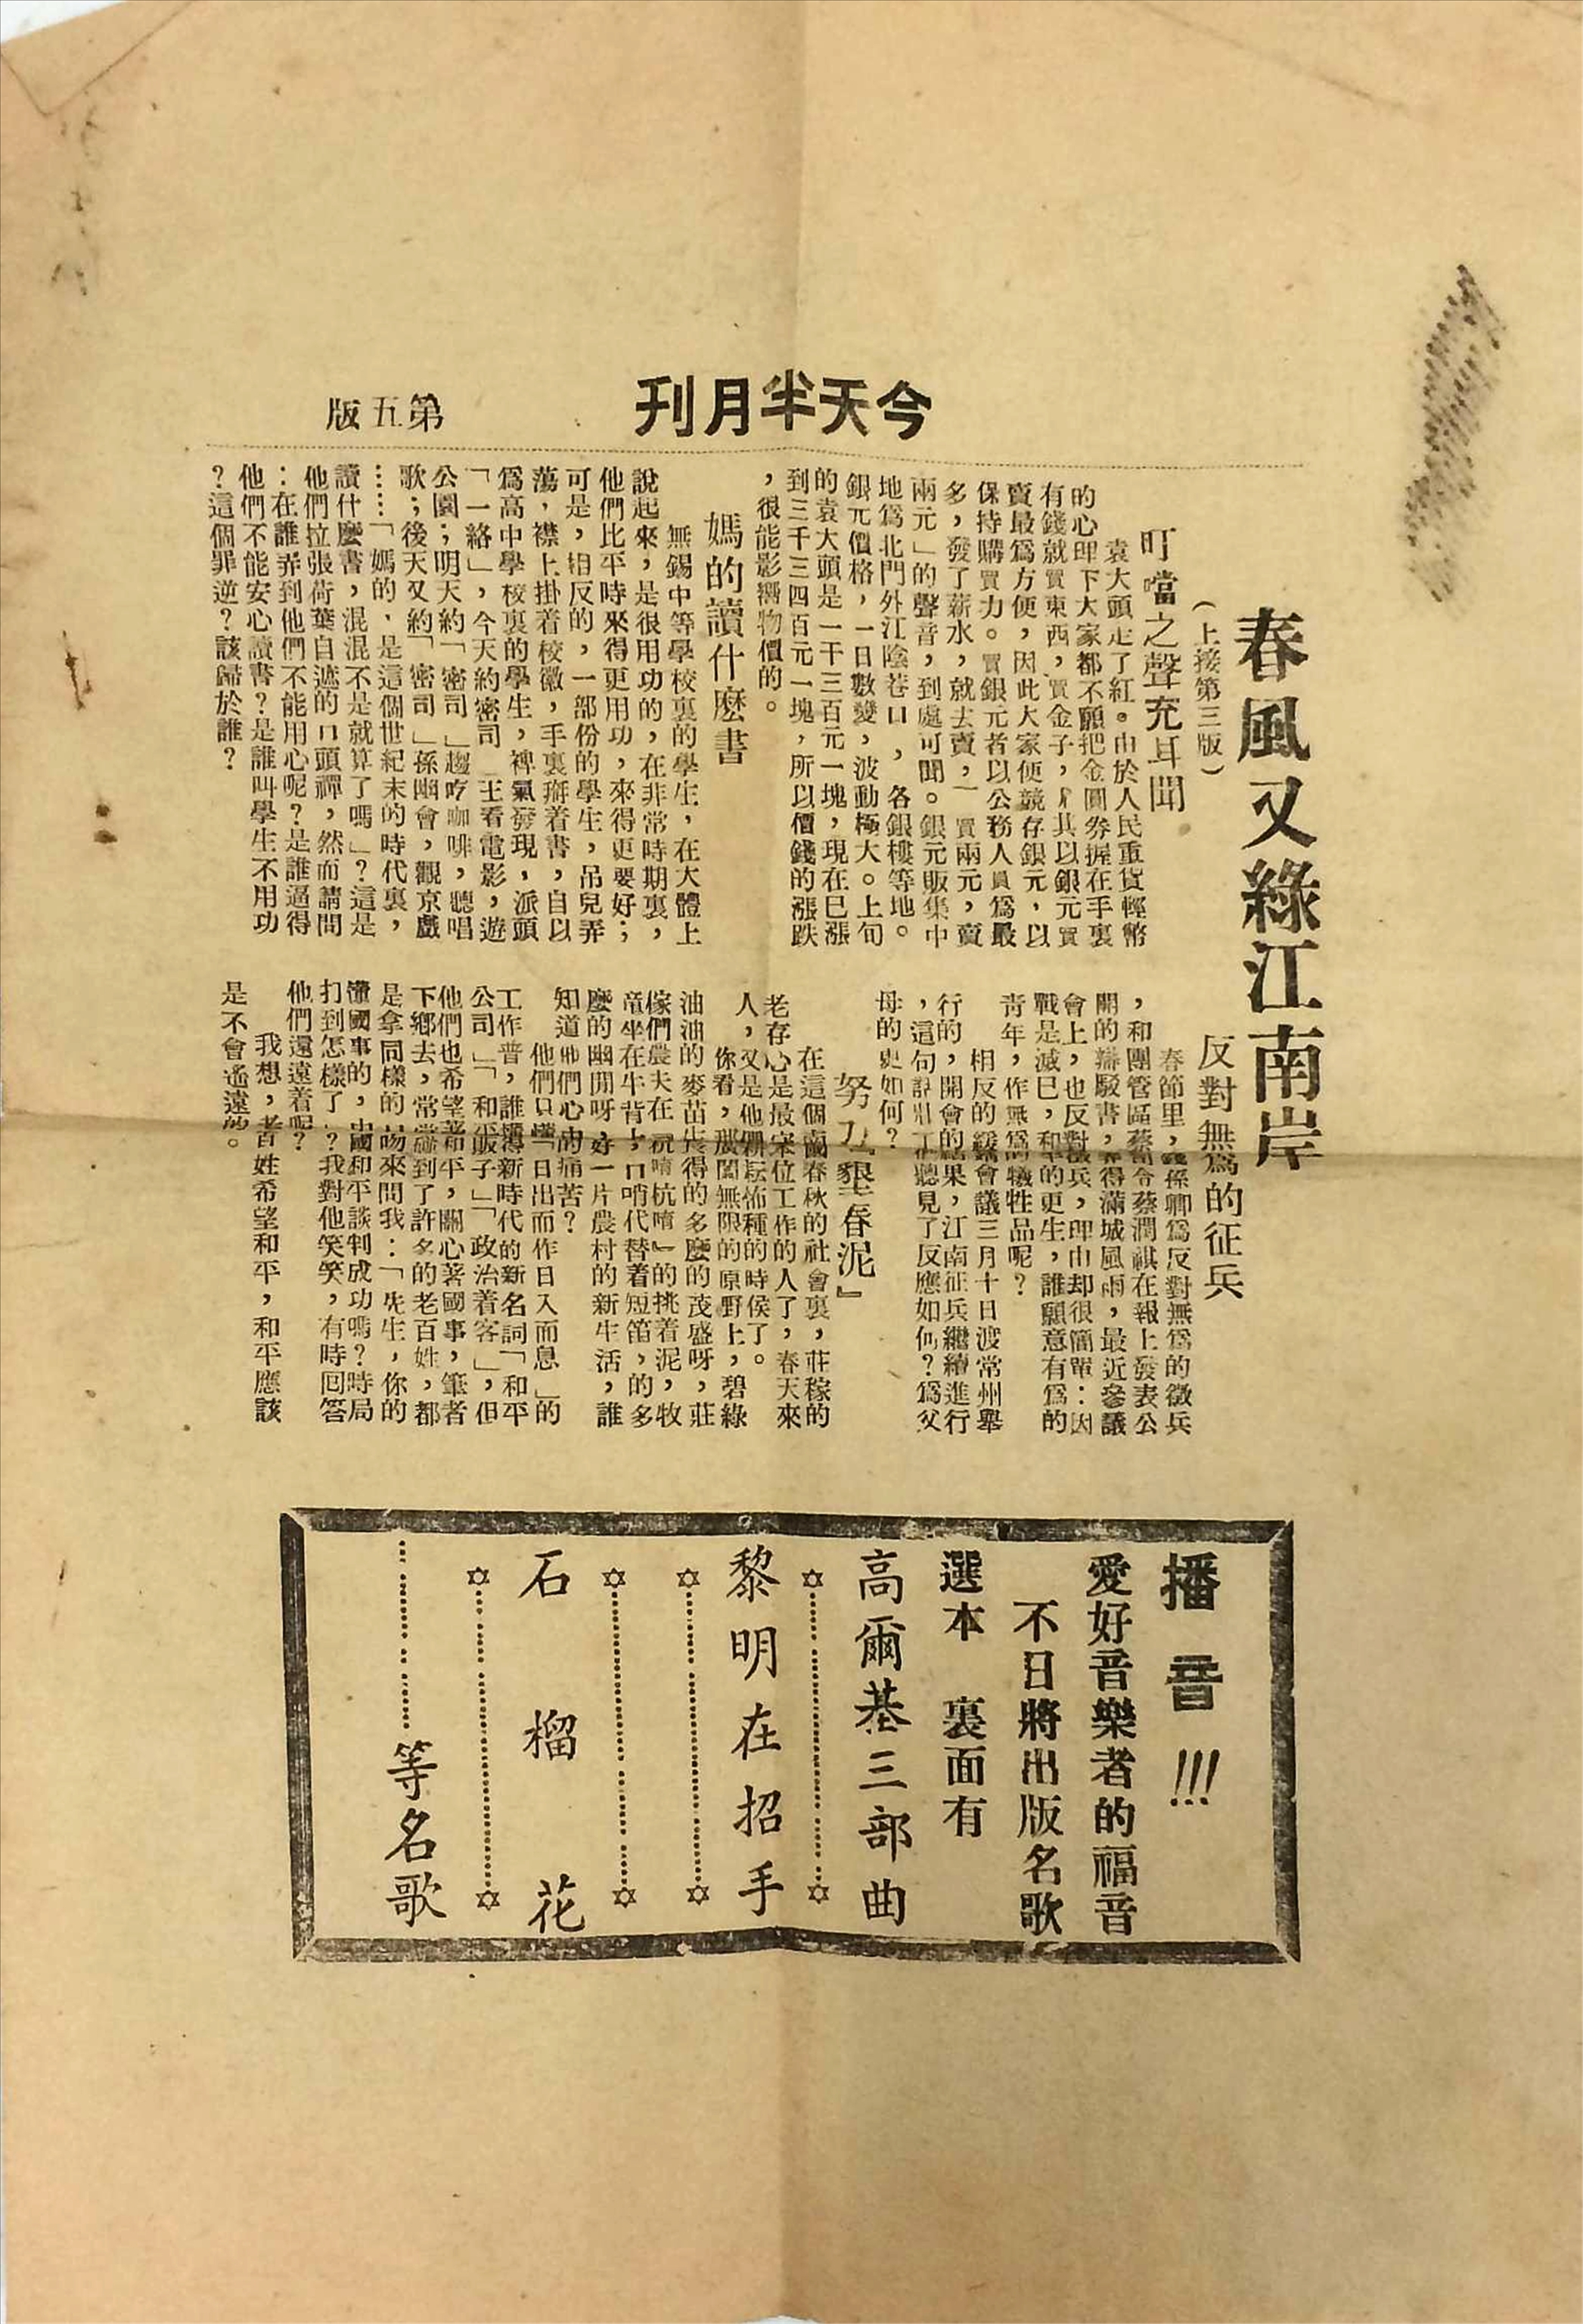 今天半月刊
第五版
春風又綠江南岸
(上接第三版)
叮噹之聲充耳聞
袁大頭走了紅。由於人民重貨輕幣
的心理下大家都不願把金圓券握在手裏
有錢就買東西,買金子,尤其以銀元買
賣最爲方便,因此大家便競存銀元,以
保持購買力。買銀元者以公務人員爲最
多,發了薪水,就去賣,「買兩元,賣
兩元」的聲音,到處可聞。銀元販集中
地爲北門外江陰巷口,各銀樓等地。
銀元價格,一日數變,波動極大。上旬
的袁大頭是一千三百元一塊,現在已漲
到三千三四百元一塊,所以價錢的漲跌
,很能影響物價的。
媽的讀什麼書
無錫中等學校裏的學生,在大體上
說起來,是很用功的,在非常時期裏,
他們比平時來得更用功,來得更要好;
可是,相反的,一部份的學生,吊兒弄
蕩,襟上掛着校徽,手裏掰着書,自以
爲高中學校裏的學生,裨氣發現,派頭
「一絡」,今天約密司 王看電影,遊
公園;明天約「密司」趨吃咖啡,聽唱
歌;後天又約「密司」孫幽會,觀京戲
……「媽的,是這個世紀末的時代裏,
讀什麼書,混混不是就算了嗎」?這是
他們拉張荷葉自遮的口頭禪,然而請問
:在誰弄到他們不能用心呢?是誰逼得
他們不能安心讀書?是誰叫學生不用功
?這個罪逆?該歸於誰?
反對無爲的征兵
春節里,錢孫卿爲反對無爲的徵兵
,和團管區蔡司令蔡潤祺在報上發表公
開的辯駁書,弄得滿城風雨,最近參議
會上,也反對徵兵,理由却很簡單:因
戰是滅巳,和平的更生,誰願意有爲的
青年,作無爲犧牲品呢?
相反的綏會議三月十日渡常州舉
行的,開會的結果,江南征兵繼續進行
,這句話壯丁聽見了反應如何?爲父
母的更如何?
努力『墾春泥』
在這個鬧春秋的社會裏,莊稼的
老存心是最宋位工作的人了,春天來
人,又是他們耕耘怖種的時侯了。
你看,那闊無限的原野上,碧綠
油油的麥苗生得的多麼的茂盛呀,莊
傢們農夫在『杭唷杭唷』的挑着泥,牧
童坐在牛背上,口哨代替着短笛,的多
麼的幽閒呀,好一片農村的新生活,誰
知道他們心中的痛苦?
他們只懂「日出而作日入而息」的
工作普,誰懂得新時代的新名詞「和平
公司」「和平販子」「政治着客」,但
他們也希望着和平,關心著國事,筆者
下鄉去,常常碰到了許多的老百姓,都
是拿同樣的話來問我:「先生,你的
懂國事的,中國和平談判成功嗎?時局
打到怎樣了」?我對他笑笑,有時回答
他們還遠着呢?
我想,者姓希望和平,和平應該
是不會遙遠的。
播音!!!
愛好音樂者的福音
不日將出版名歌
選本 裏面有
高爾基三部曲
黎明在招手
石榴花
等名歌